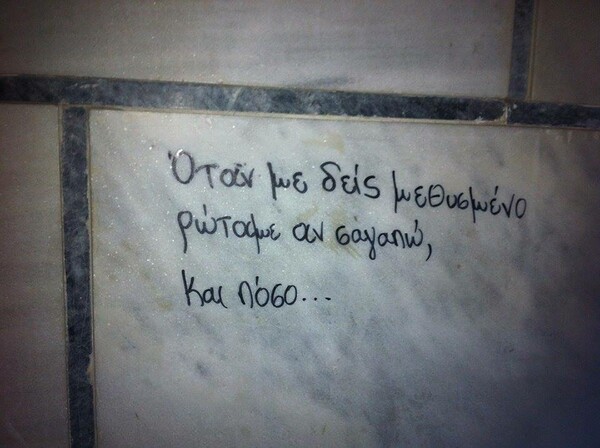 Όταν με δεις μεθυσμένο
ρώταμε αν σαγαπώ,
Και πόσο...